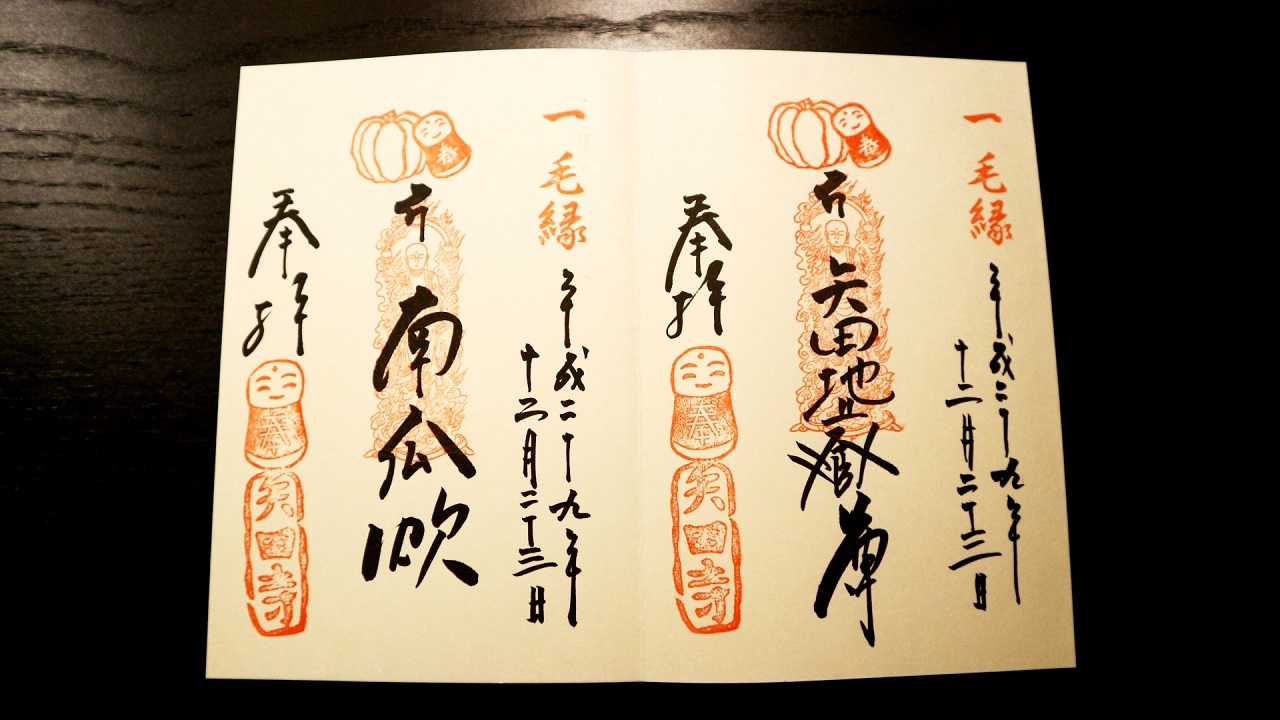 一毛縁
平成二十九年
十二月二十三日
矢田地蔵尊
奉拝
奉
矢田寺
一毛縁
平成二十九年
十二月二十三日
南瓜炊
奉拝
奉
矢田寺